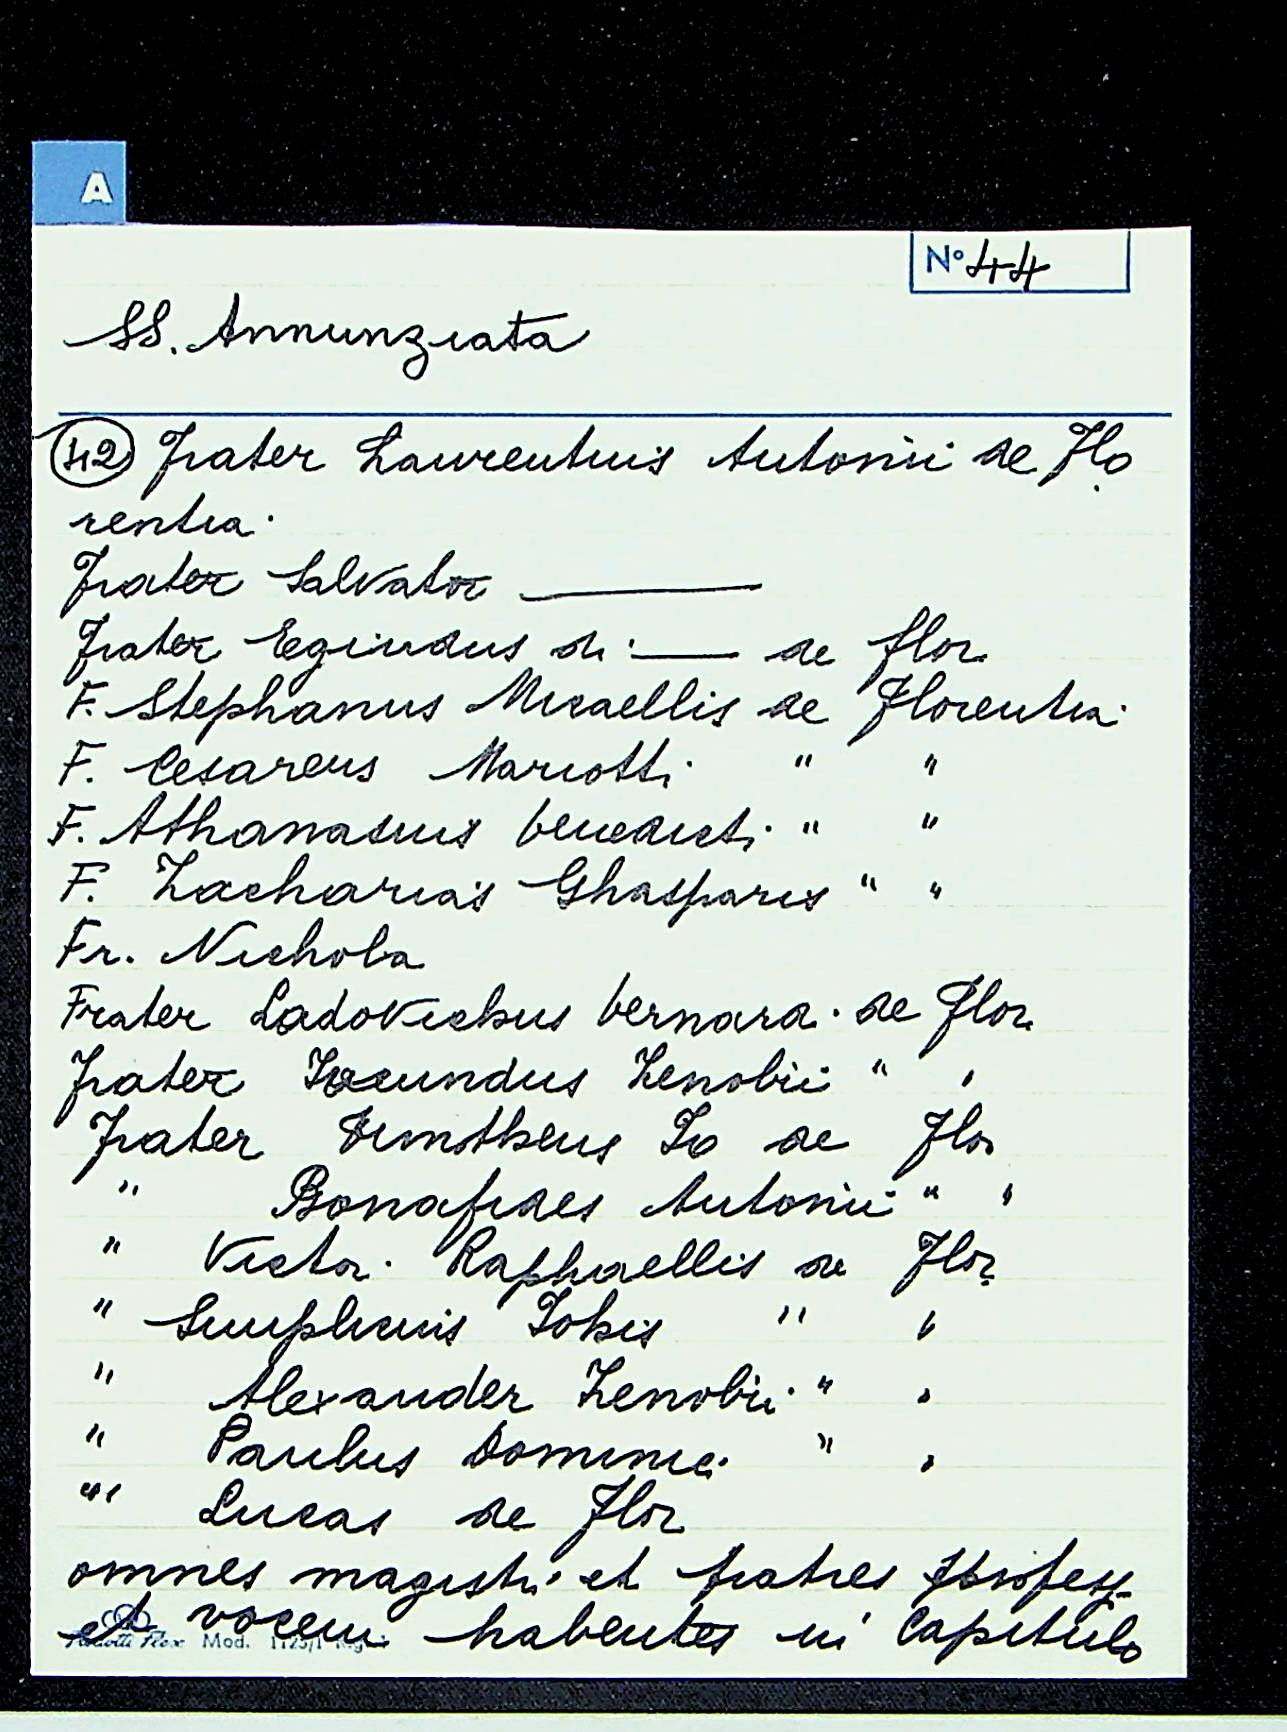 A
N° 44
SS. Annunziata
42 Frater Laurentius Antonii de Flo
rentia.
Frater Salvator ———
Frater Egindus di —— de flor.
F. Stephanus Micaellis de Florentia.
F. Cesareus Mariotti " "
F. Athanasius benedicti " "
F. Zacharias Ghasparis " "
Fr. Nichola
Frater Ladovichus bernard. de Flor.
Frater Iocundus Zenobii " "
Frater Timotheus Io de Flor
" Bonafides Antonii " "
" Victor. Raphaellis de Flor.
" Simplicius Iohis " "
" Alexander Zenobii " "
" Paulus Dominici " "
" Lucas de Flor
omnes magistri et fratres professi
et vocem habentes in Capitulo
Mod. 1125/1